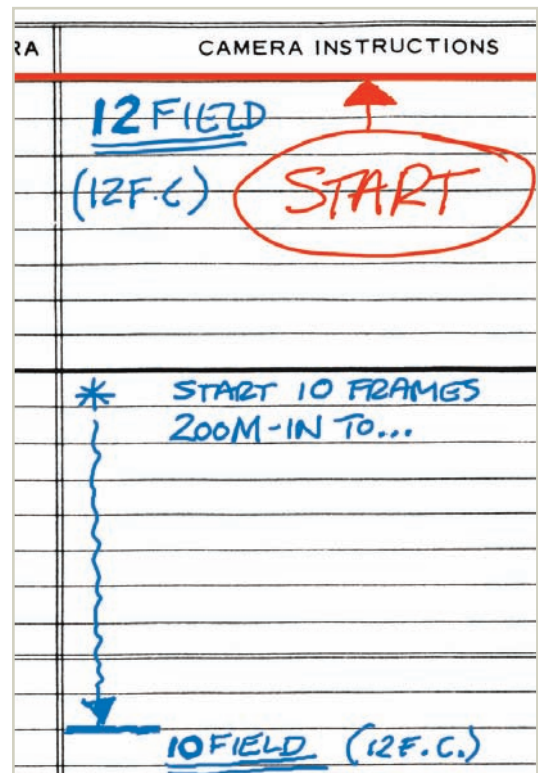 RA CAMERA INSTRUCTIONS
12 FIELD
(12F.C) START
* START 10 FRAMES
ZOOM-IN TO...
10 FIELD (12F.C.)